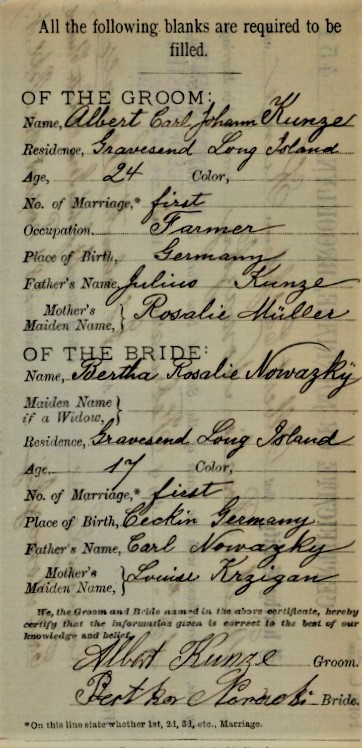 All the following blanks are required to be
filled.
OF THE GROOM:
Name, Albert Carl Johann Kunze
Residence, Gravesend Long Island
Age, 24 Color,
No. of Marriage,* first
Occupation. Farmer
Place of Birth, Germany
Father's Name, Julius Kunze
Mother's
Maiden Name, } Rosalie Müller
OF THE BRIDE:
Name, Bertha Rosalie Nowazky
Maiden Name
if a Widow, }
Residence, Gravesend Long Island
Age, 17 Color,
No. of Marriage,* first
Place of Birth, Germany
Father's Name, Carl Nowazky
Mother's
Maiden Name, } Louise Krzigan
We, the Groom and Bride named in the above certificate, hereby
certify that the information given is correct to the best of our
knowledge and belief.
Albert Kunze Groom.
Bride.
*On this line state whether 1st, 2d, 3d, etc., Marriage.